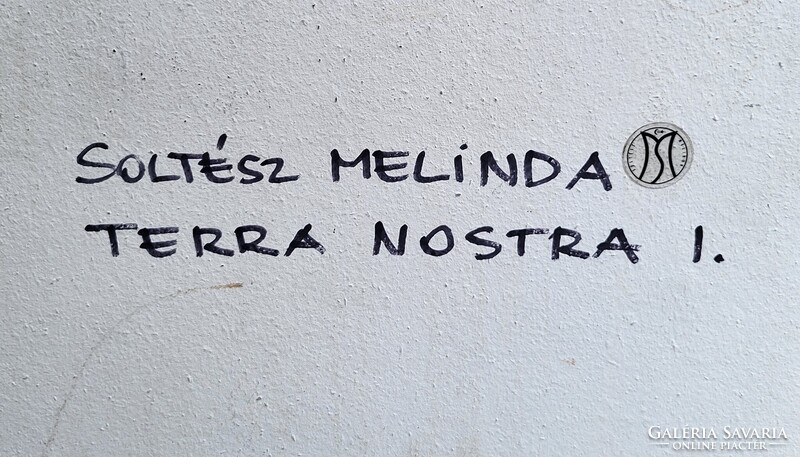 SOLTÉSZ MELINDA
TERRA NOSTRA I.
GALÉRIA SAVARIA
ONLINE PIACTÉR